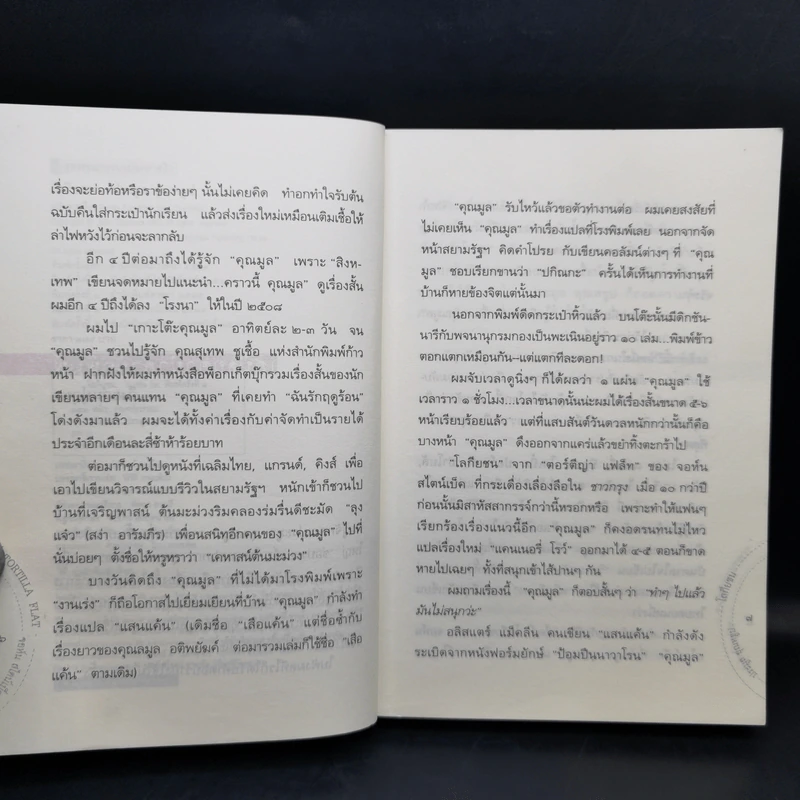 เรื่องจะย่อท้อหรือราข้อง่ายๆ นั้นไม่เคยคิด ทำอกทำใจรับต้น
ฉบับคืนใส่กระเป๋านักเรียน แล้วส่งเรื่องใหม่เหมือนเติมเชื้อให้
ล่าไฟหวังไว้ก่อนจะลากลับ
อีก ๔ ปีต่อมาถึงได้รู้จัก "คุณมูล" เพราะ "สิงห-
เทพ" เขียนจดหมายไปแนะนำ...คราวนี้ คุณมูล" ดูเรื่องสั้น
ผมอีก ๔ ปีถึงได้ลง "โรงนา" ให้ในปี ๒๕๐๘
ผมไป "เกาะโต๊ะคุณมูล" อาทิตย์ละ ๒-๓ วัน จน
"คุณมูล" ชวนไปรู้จัก คุณสุเทพ ชูเชื้อ แห่งสำนักพิมพ์ก้าว
หน้า ฝากฝังให้ผมทำหนังสือพ็อกเก็ตบุ๊กรวมเรื่องสั้นของนัก
เขียนหลายๆ คนแทน "คุณมูล" ที่เคยทำ "ฉันรักฤดูร้อน"
โด่งดังมาแล้ว ผมจะได้ทั้งค่าเรื่องกับค่าจัดทำเป็นรายได้
ประจำอีกเดือนละสี่ซ้าห้าร้อยบาท
ต่อมาก็ชวนไปดูหนังที่เฉลิมไทย, แกรนด์, คิงส์ เพื่อ
เอาไปเขียนวิจารณ์แบบรีวิวในสยามรัฐฯ หนักเข้าก็ชวนไป
บ้านที่เจริญพาสน์ ต้นมะม่วงริมคลองร่มรื่นดีชะมัด "ลุง
แจ๋ว" (สง่า อารัมภีร) เพื่อนสนิทอีกคนของ "คุณมูล" ไปที่
นั่นบ่อยๆ ตั้งชื่อให้หรูหราว่า "เคหาสน์ต้นมะม่วง"
บางวันคิดถึง "คุณมูล" ที่ไม่ได้มาโรงพิมพ์เพราะ
"งานเร่ง" ก็ถือโอกาสไปเยี่ยมเยียนที่บ้าน "คุณมูล" กำลังทำ
เรื่องแปล "แสนแค้น" (เดิมชื่อ "เสือแค้น" แต่ชื่อซ้ำกับ
เรื่องยาวของคุณลมูล อติพยัคฆ์ ต่อมารวมเล่มก็ใช้ชื่อ "เสือ
แค้น" ตามเดิม)
TORTILLA FLAT
"คุณมูล" รับไหว้แล้วขอตัวทำงานต่อ ผมเคยสงสัยที่
ไม่เคยเห็น "คุณมูล" ทำเรื่องแปลที่โรงพิมพ์เลย นอกจากจัด
หน้าสยามรัฐฯ คิดคำโปรย กับเขียนคอลัมน์ต่างๆ ที่ "คุณ
มูล" ชอบเรียกขานว่า "ปกิณกะ" ครั้นได้เห็นการทำงานที่
บ้านก็หายข้องจิตแต่นั้นมา
นอกจากพิมพ์ดีดกระเป๋าหิ้วแล้ว บนโต๊ะนั้นมีดิกชัน-
นารีกับพจนานุกรมกองเป็นพะเนินอยู่ราว ๑๐ เล่ม...พิมพ์ข้าว
ตอกแตกเหมือนกัน–แต่แตกทีละดอก!
ผมจับเวลาดูนิ่งๆ ก็ได้ผลว่า ๑ แผ่น "คุณมูล" ใช้
เวลาราว ๑ ชั่วโมง...เวลาขนาดนั้นน่ะผมได้เรื่องสั้นขนาด ๕-๖
หน้าเรียบร้อยแล้ว แต่ที่แสบสันต์วันตวลหนักกว่านั้นก็คือ
บางหน้า "คุณมูล" ดึงออกจากแคร่แล้วขยำทิ้งตะกร้าไป
"โลกียชน" จาก "ตอร์ตีญ่า แฟล็ท" ของ จอห์น
สไตน์เบ็ค ที่กระเดื่องเลื่องลือใน ชาวกรุง เมื่อ ๑๐ กว่าปี
ก่อนนั้นมิสาหัสสากรรจ์กว่านี้หรอกหรือ เพราะทำให้แฟนๆ
เรียกร้องเรื่องแนวนี้อีก "คุณมูล" ก็คงอดรนทนไม่ไหว
แปลเรื่องใหม่ "แคนเนอรี่ โรว์" ออกมาได้ ๔-๕ ตอนก็ขาด
หายไปเฉยๆ ทั้งที่สนุกเข้าไส้ปานๆ กัน
ผมถามเรื่องนี้ "คุณมูล" ก็ตอบสั้นๆ ว่า "ทำๆ ไปแล้ว
มันไม่สนุกว่ะ"
อลิสแตร์ แม็คลีน คนเขียน "แสนแค้น" กำลังดัง
ระเบิดจากหนังฟอร์มยักษ์ "ป้อมปืนนาวาโรน" "คุณมูล"